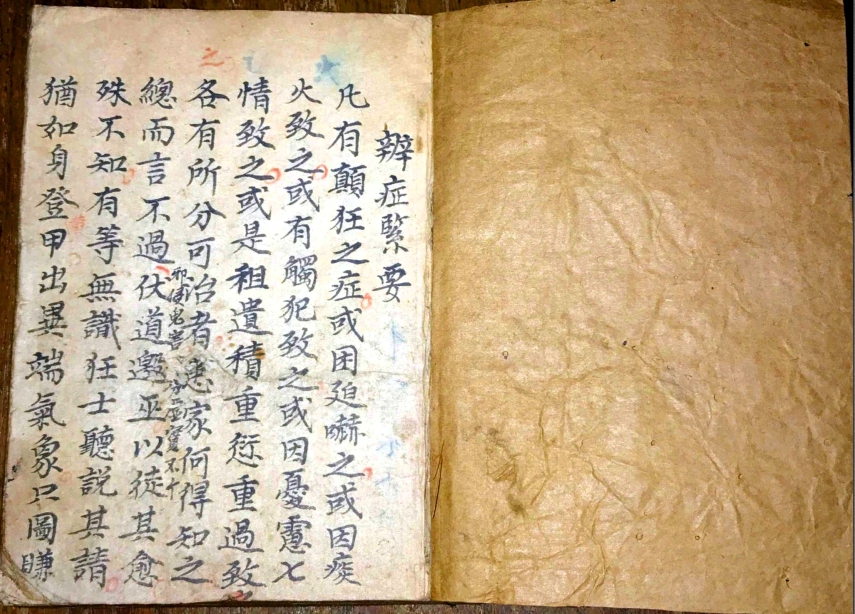 辨症緊要
凡有顛狂之症或因廹嚇之或因痰
火致之或有觸犯致之或因憂慮七
情致之或是祖遺積重愆重過致
各有所分可治者患家何得知之
總而言不過伏道邀巫以徒其愈
殊不知有等無識狂士聽說其請
猶如身登甲出異端氣象只圖賺